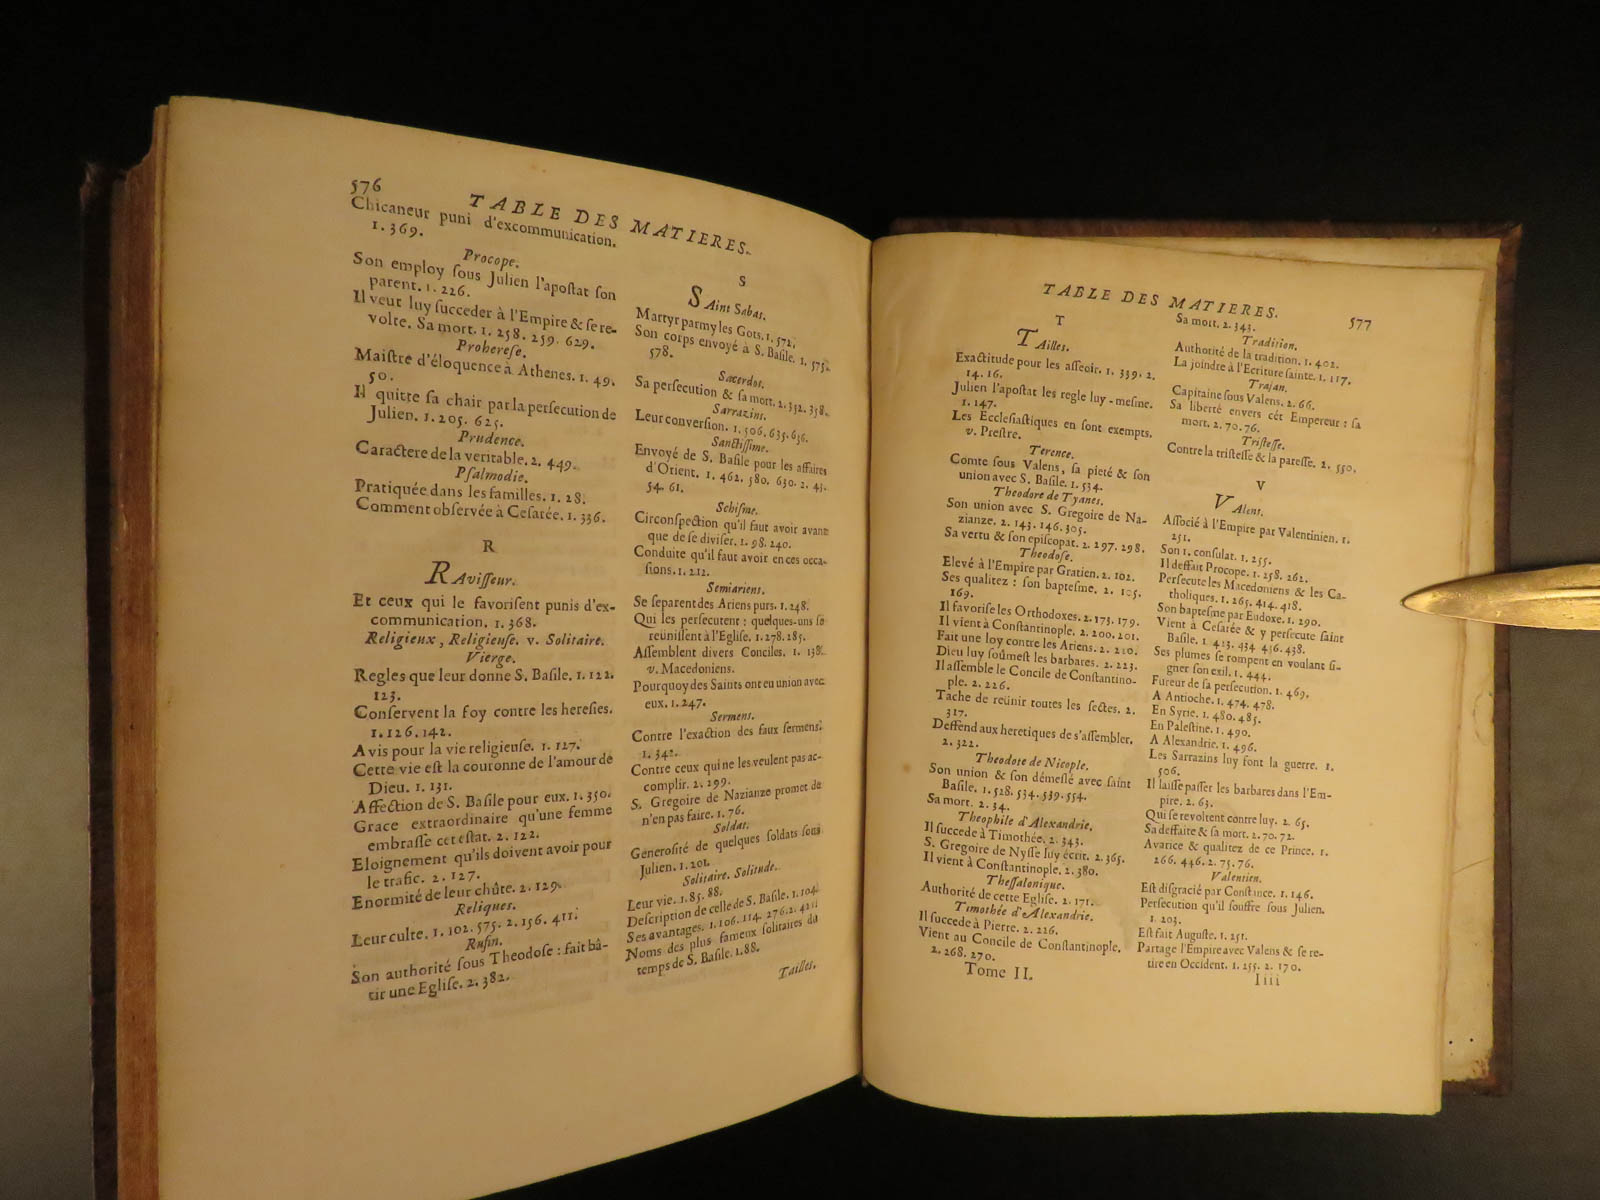 576
TABLE DES MATIERES.
Chicaneur puni d'excommunication.
1. 369.
Procope.
Son employ ſous Julien l'apoſtat ſon
parent. 1. 226.
Il veut luy ſucceder à l'Empire & ſe re-
volte. Sa mort. 1. 258. 259. 629.
Prohereſe.
Maiſtre d'éloquence à Athenes. 1. 49.
50.
Il quitte ſa chair par la perſecution de
Julien. 1. 205. 625.
Prudence.
Caractere de la veritable. 2. 449.
Pſalmodie.
Pratiquée dans les familles. 1. 28.
Comment obſervée à Ceſarée. 1. 336.
R
RAviſſeur.
Et ceux qui le favoriſent punis d'ex-
communication. 1. 368.
Religieux, Religieuſe. v. Solitaire.
Vierge.
Regles que leur donne S. Baſile. 1. 122.
123.
Conſervent la foy contre les hereſies.
1. 126. 142.
Avis pour la vie religieuſe. 1. 127.
Cette vie eſt la couronne de l'amour de
Dieu. 1. 131.
Affection de S. Baſile pour eux. 1. 350.
Grace extraordinaire qu'une femme
embraſſe cet eſtat. 2. 122.
Eloignement qu'ils doivent avoir pour
le trafic. 2. 127.
Enormité de leur chûte. 2. 129.
Reliques.
Leur culte. 1. 102. 575. 2. 156. 411.
Rufin.
Son authorité ſous Theodoſe : fait bâ-
tir une Egliſe. 2. 382.
S
SAint Sabas.
Martyr parmy les Gots. 1. 572.
Son corps envoyé à S. Baſile. 1. 575.
578.
Sacerdos.
Sa perſecution & ſa mort. 2. 352. 358.
Sarrazins.
Leur converſion. 1. 506. 635. 636.
Sanctiſſime.
Envoyé de S. Baſile pour les affaires
d'Orient. 1. 462. 580. 630. 2. 45.
54. 61.
Schiſme.
Circonſpection qu'il faut avoir avant
que de ſe diviſer. 1. 98. 240.
Conduite qu'il faut avoir en ces occa-
ſions. 1. 212.
Semiariens.
Se ſeparent des Ariens purs. 1. 248.
Qui les perſecutent : quelques-uns ſe
reüniſſent à l'Egliſe. 1. 278. 285.
Aſſemblent divers Conciles. 1. 138.
v. Macedoniens.
Pourquoy des Saints ont eu union avec
eux. 1. 247.
Sermens.
Contre l'exaction des faux ſermens.
1. 342.
Contre ceux qui ne les veulent pas ac-
complir. 2. 299.
S. Gregoire de Nazianze promet de
n'en pas faire. 1. 76.
Soldat.
Generoſité de quelques ſoldats ſous
Julien. 1. 201.
Solitaire. Solitude.
Leur vie. 1. 85. 88.
Deſcription de celle de S. Baſile. 1. 104.
Ses avantages. 1. 106. 114. 276. 2.
Noms des plus fameux ſolitaires du
temps de S. Baſile. 1. 88.
Tailles.
TABLE DES MATIERES.
577
T
TAilles.
Exactitude pour les aſſeoir. 1. 339. 2.
14. 16.
Julien l'apoſtat les regle luy-meſme.
1. 147.
Les Eccleſiaſtiques en ſont exempts.
v. Preſtre.
Terence.
Comte ſous Valens, ſa pieté & ſon
union avec S. Baſile. 1. 534.
Theodore de Tyanes.
Son union avec S. Gregoire de Na-
zianze. 2. 143. 146. 305.
Sa vertu & ſon epiſcopat. 2. 297. 298.
Theodoſe.
Elevé à l'Empire par Gratien. 2. 102.
Ses qualitez : ſon bapteſme. 2. 105.
169.
Il favoriſe les Orthodoxes. 2. 173. 179.
Il vient à Conſtantinople. 2. 200. 201.
Fait une loy contre les Ariens. 2. 210.
Dieu luy ſoûmeſt les barbares. 2. 223.
Il aſſemble le Concile de Conſtantino-
ple. 2. 226.
Tache de reünir toutes les ſectes. 2.
317.
Deffend aux heretiques de s'aſſembler.
2. 322.
Theodote de Nicople.
Son union & ſon démeſlé avec ſaint
Baſile. 1. 528. 534. 539. 554.
Sa mort. 2. 34.
Theophile d'Alexandrie.
Il ſuccede à Timothée. 2. 343.
S. Gregoire de Nyſſe luy écrit. 2. 365.
Il vient à Conſtantinople. 2. 380.
Theſſalonique.
Authorité de cette Egliſe. 2. 171.
Timothée d'Alexandrie.
Il ſuccede à Pierre. 2. 226.
Vient au Concile de Conſtantinople.
2. 268. 270.
Tome II.
Sa mort. 2. 343.
Tradition.
Authorité de la tradition. 1. 402.
La joindre à l'Ecriture ſainte. 1. 117.
Trajan.
Capitaine ſous Valens. 2. 66.
Sa liberté envers cét Empereur : ſa
mort. 2. 70. 76.
Triſteſſe.
Contre la triſteſſe & la pareſſe. 2. 550.
V
VAlens.
Aſſocié à l'Empire par Valentinien. 1.
251.
Son 1. conſulat. 1. 255.
Il deffait Procope. 1. 258. 262.
Perſecute les Macedoniens & les Ca-
tholiques. 1. 265. 414. 418.
Son bapteſme par Eudoxe. 1. 290.
Vient à Ceſarée & y perſecute ſaint
Baſile. 1. 413. 434 436. 438.
Ses plumes ſe rompent en voulant ſi-
gner ſon exil. 1. 444.
Fureur de ſa perſecution. 1. 469.
A Antioche. 1. 474. 478.
En Syrie. 1. 480. 485.
En Paleſtine. 1. 490.
A Alexandrie. 1. 496.
Les Sarrazins luy font la guerre. 1.
506.
Il laiſſe paſſer les barbares dans l'Em-
pire. 2. 63.
Qui ſe revoltent contre luy. 2. 65.
Sa deffaite & ſa mort. 2. 70. 72.
Avarice & qualitez de ce Prince. 1.
266. 446. 2. 75. 76.
Valentien.
Eſt diſgracié par Conſtance. 1. 146.
Perſecution qu'il ſouffre ſous Julien.
1. 203.
Eſt fait Auguſte. 1. 251.
Partage l'Empire avec Valens & ſe re-
tire en Occident. 1. 255. 2. 170.
Iiii